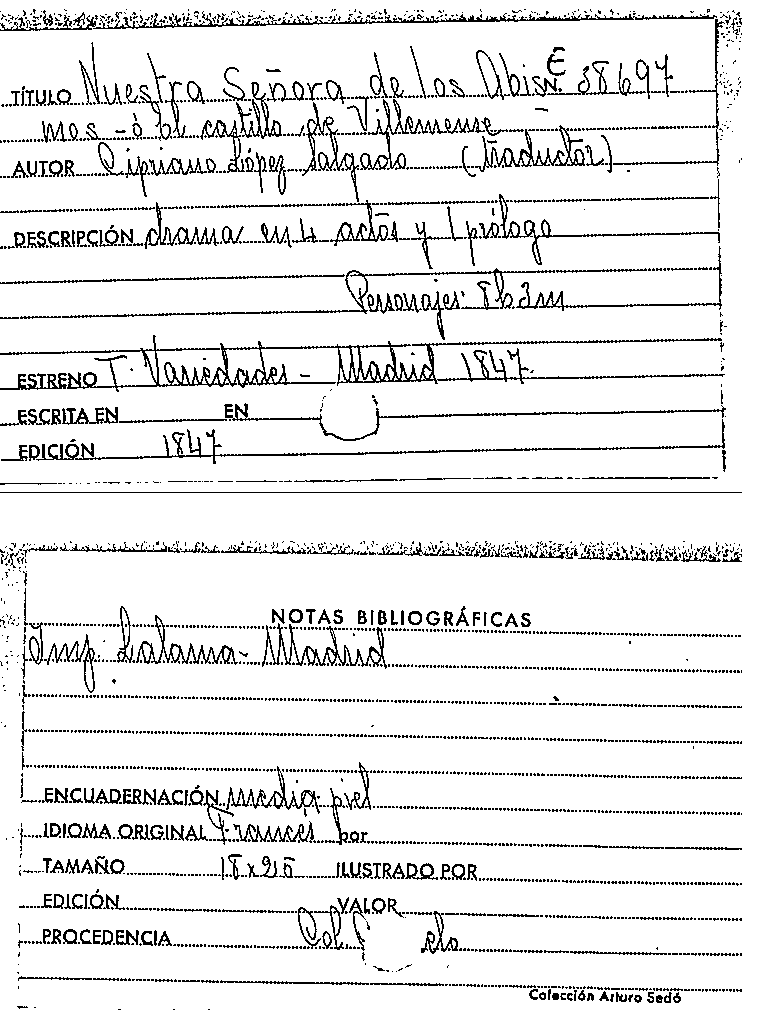 TÍTULO Nuestra Señora de los Abis- Nº E 38697
mos - ó El castillo de Villemeuse
AUTOR Cipriano López Salgado (traductor)
DESCRIPCIÓN drama en 4 actos y 1 prólogo
Personajes: 8h3m
ESTRENO T. Variedades - Madrid 1847
ESCRITA EN EN
EDICIÓN 1847
NOTAS BIBLIOGRÁFICAS
Imp. Lalama - Madrid
ENCUADERNACIÓN media piel
IDIOMA ORIGINAL Francés por
TAMAÑO 18 x 26 ILUSTRADO POR
EDICIÓN VALOR
PROCEDENCIA Col.
Colección Arturo Sedó